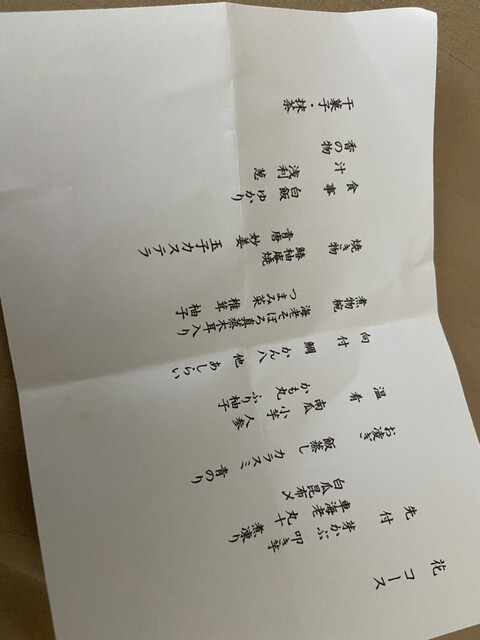 花 コース
先付
芽かぶ 叩き芋 煮凍り
車海老 丸十
白瓜昆布〆
お凌ぎ
飯蒸し カラスミ 青のり
温肴
南瓜 小芋 人参
かも丸 ふり柚子
向付
鯛 かん八 他 あしらい
煮物椀
海老そぼろ真蒸木耳入り
つまみ菜 椎茸 柚子
焼き物
鰆柚庵焼
青唐 妙姜 玉子カステラ
食事
白飯 ゆかり
汁
浅利 葱
香の物
干菓子・抹茶